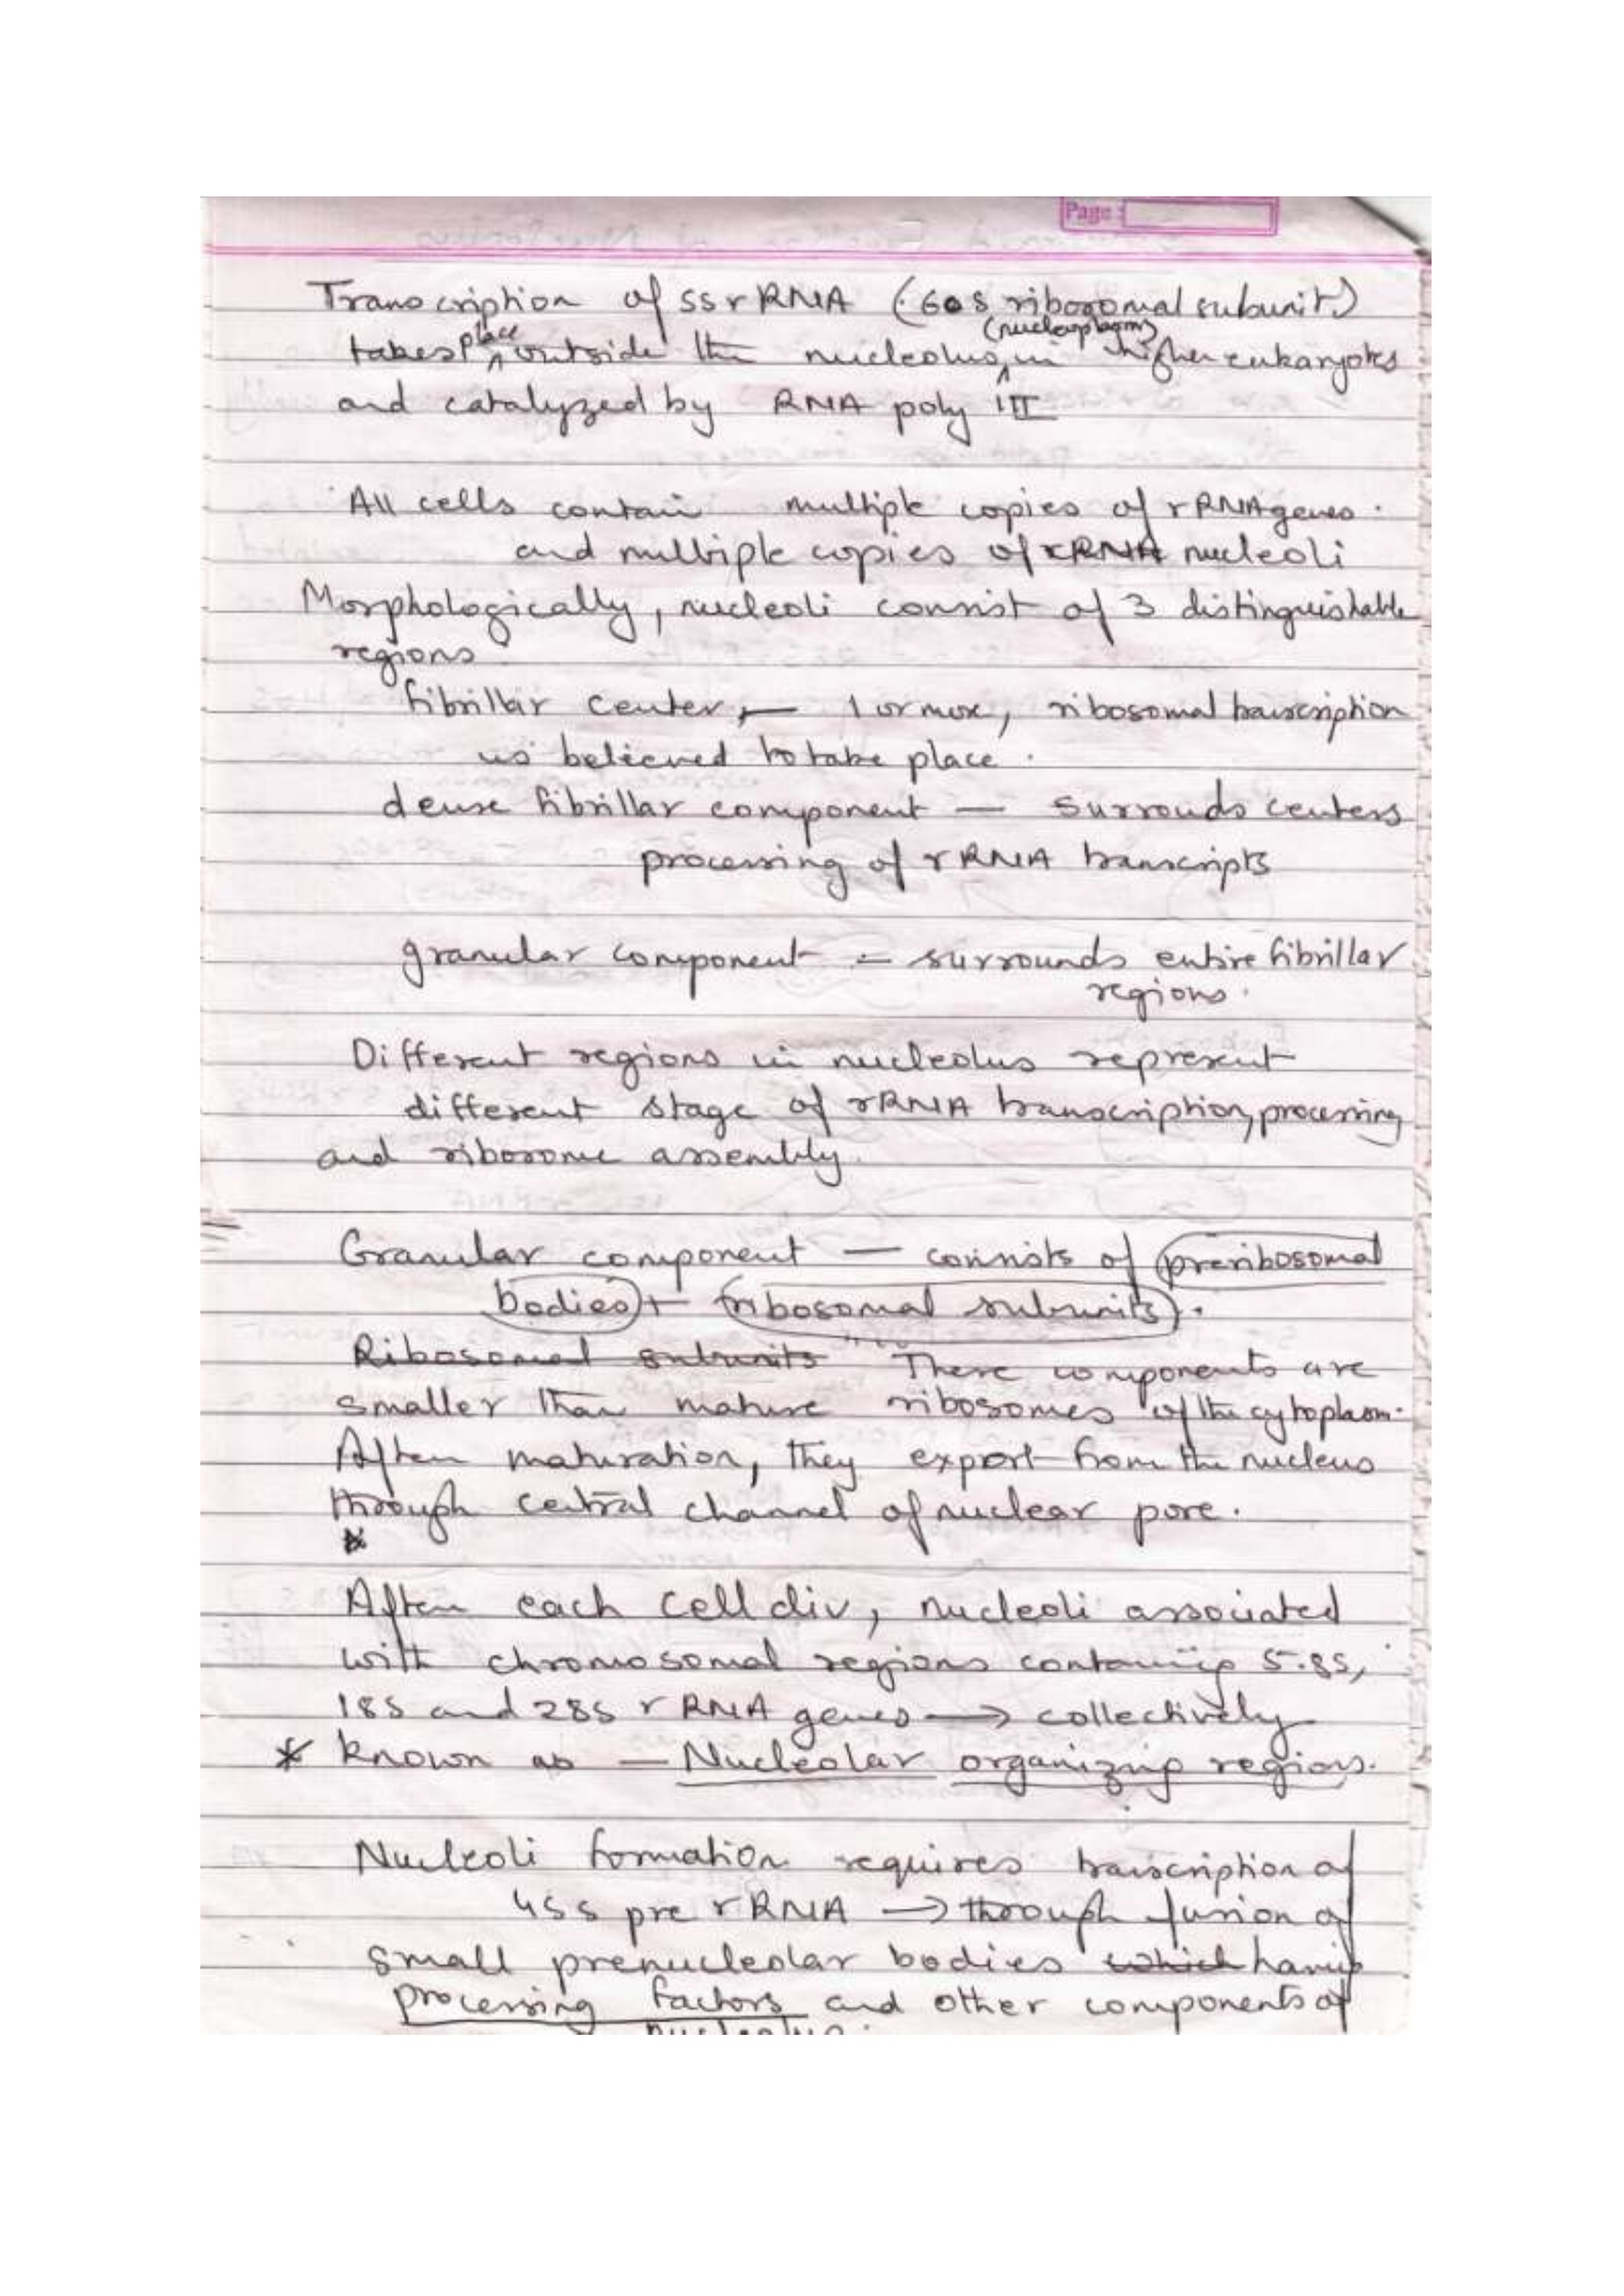 Page :
Transcription of 5S rRNA (60S ribosomal subunit)
takes place outside the nucleolus (nucleoplasm) in higher eukaryotes
and catalyzed by RNA poly III
All cells contain multiple copies of rRNA genes.
and multiple copies of rRNA nucleoli
Morphologically, nucleoli consist of 3 distinguishable
regions
fibrillar center, — 1 or more, ribosomal transcription
is believed to take place.
dense fibrillar component — surrouds centers
processing of rRNA transcripts
granular component - surrounds entire fibrillar
regions.
Different regions in nucleolus represent
different stage of rRNA transcription, processing
and ribosome assembly.
Granular component — consists of preribosomal
bodies + ribosomal subunits.
Ribosomal subunits These components are
smaller than mature ribosomes of the cytoplasm.
After maturation, they export from the nucleus
through central channel of nuclear pore.
After each cell div, nucleoli associated
with chromosomal regions containing 5.8S,
18S and 28S rRNA genes → collectively
* known as — Nucleolar organizing regions.
Nucleoli formation requires transcription of
45S pre rRNA → through fusion of
small prenucleolar bodies which having
processing factors and other components of
nucleolus.